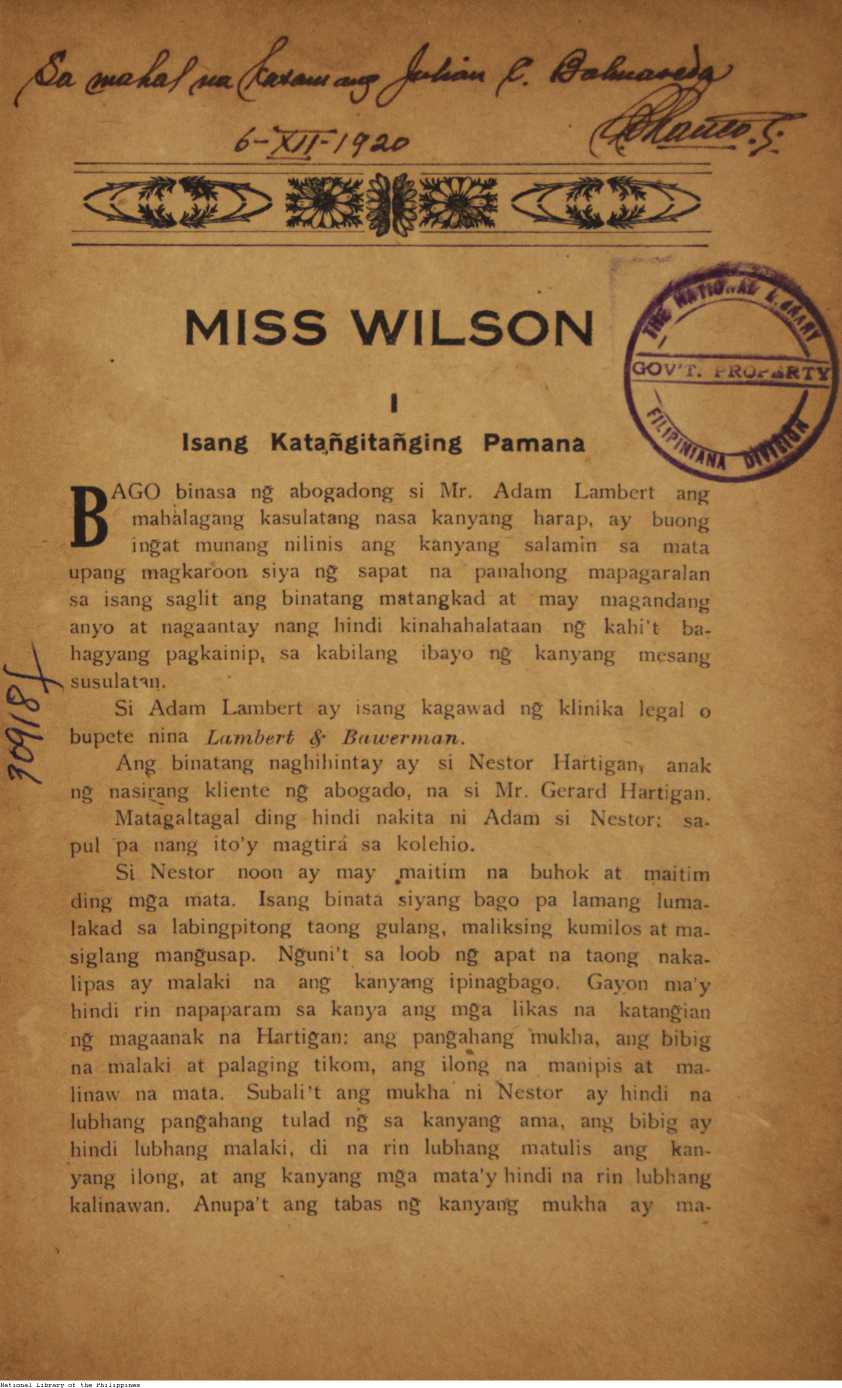 Sa mahal na kasamang Julian C. Balmaseda
6-XII-1920
MISS WILSON
THE NATIONAL LIBRARY
GOV'T. PROPERTY
FILIPINIANA DIVISION
I
Isang Katañgitañging Pamana
BAGO binasa ng̃ abogadong si Mr. Adam Lambert ang
mahalagang kasulatang nasa kanyang harap, ay buong
ing̃at munang nilinis ang kanyang salamin sa mata
upang magkaroon siya ng̃ sapat na panahong mapagaralan
sa isang saglit ang binatang matangkad at may magandang
anyo at nagaantay nang hindi kinahahalataan ng̃ kahi't ba-
hagyang pagkainip, sa kabilang ibayo ng̃ kanyang mesang
susulatan.
Si Adam Lambert ay isang kagawad ng̃ klinika legal o
bupete nina Lambert & Bawerman.
Ang binatang naghihintay ay si Nestor Hartigan, anak
ng̃ nasirang kliente ng̃ abogado, na si Mr. Gerard Hartigan.
Matagaltagal ding hindi nakita ni Adam si Nestor: sa-
pul pa nang ito'y magtirá sa kolehio.
Si Nestor noon ay may maitim na buhok at maitim
ding mg̃a mata. Isang binata siyang bago pa lamang luma-
lakad sa labingpitong taong gulang, maliksing kumilos at ma-
siglang mang̃usap. Ng̃uni't sa loob ng̃ apat na taong naka-
lipas ay malaki na ang kanyang ipinagbago. Gayon ma'y
hindi rin napaparam sa kanya ang mg̃a likas na katang̃ian
ng̃ magaanak na Hartigan: ang pang̃ahang mukha, ang bibig
na malaki at palaging tikom, ang ilong na manipis at ma-
linaw na mata. Subali't ang mukha ni Nestor ay hindi na
lubhang pang̃ahang tulad ng̃ sa kanyang ama, ang bibig ay
hindi lubhang malaki, di na rin lubhang matulis ang kan-
yang ilong, at ang kanyang mg̃a mata'y hindi na rin lubhang
kalinawan. Anupa't ang tabas ng̃ kanyang mukha ay ma-
National Library of the Philippines